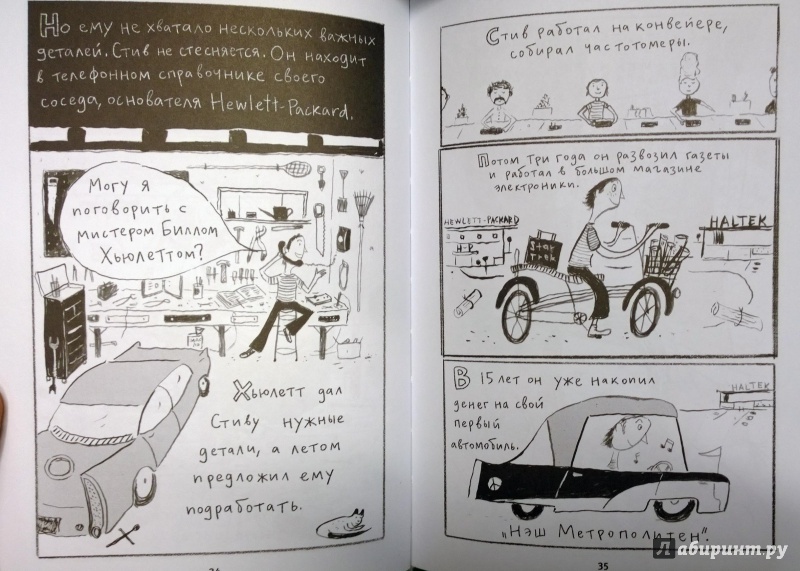 Но ему не хватало нескольких важных
деталей. Стив не стесняется. Он находит
в телефонном справочнике своего
соседа, основателя Hewlett-Packard.
Могу я
поговорить с
мистером Биллом
Хьюлеттом?
Хьюлетт дал
Стиву нужные
детали, а летом
предложил ему
подработать.
Стив работал на конвейере,
собирал частотомеры.
Потом три года он развозил газеты
и работал в большом магазине
электроники.
HEWLETT-PACKARD
H-P
Star
Trek
HALTEK
В 15 лет он уже накопил
денег на свой
первый
автомобиль.
HALTEK
„Нэш Метрополитен".
35
Лабиринт.ру